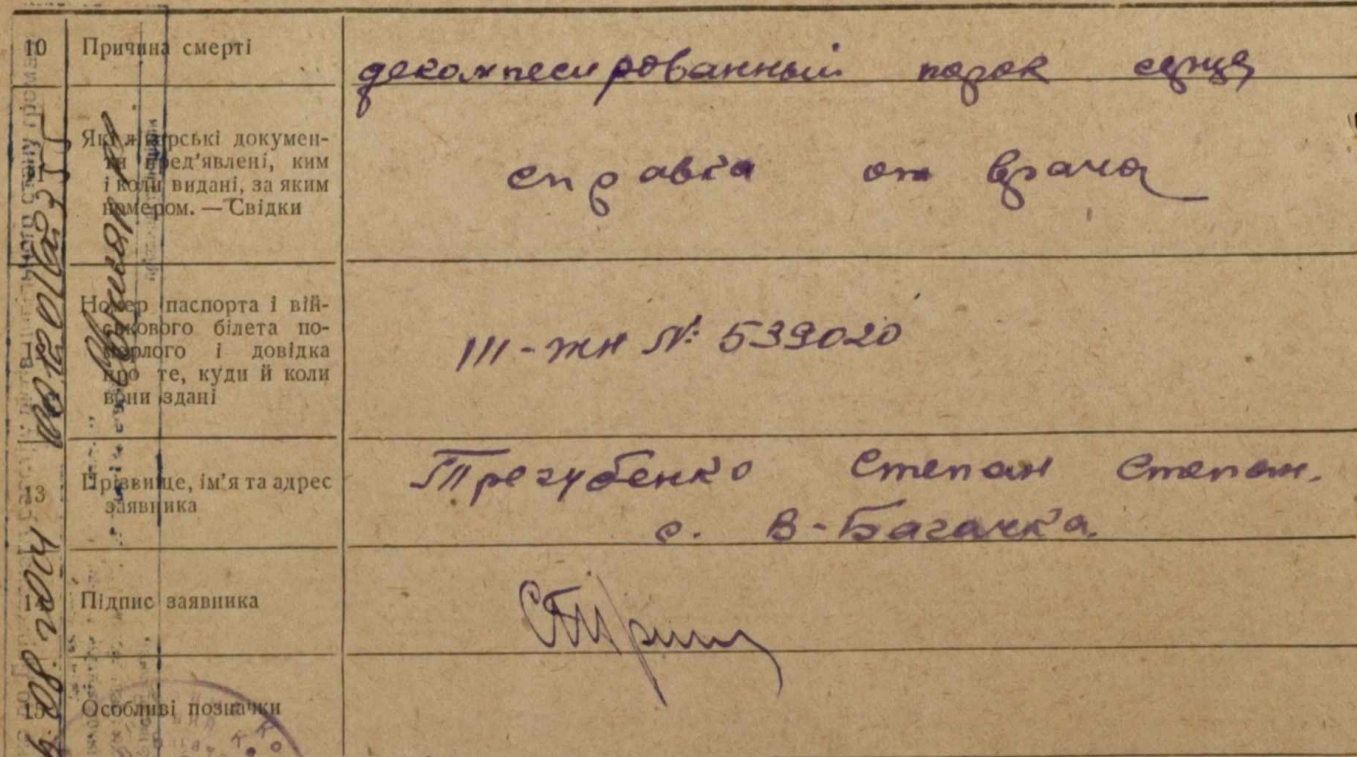 10 Причина смерті
декомпесированный порок сердца
Які лікарські докумен-
ти пред'явлені, ким
і коли видані, за яким
номером. — Свідки
справка от врача
Номер паспорта і вій-
ськового білета по-
мерлого і довідка
про те, куди й коли
вони здані
III-жн № 539020
13 Прізвище, ім'я та адрес
заявника
Трегубенко Степан Степан.
с. В-Багачка.
14 Підпис заявника
15 Особливі позначки